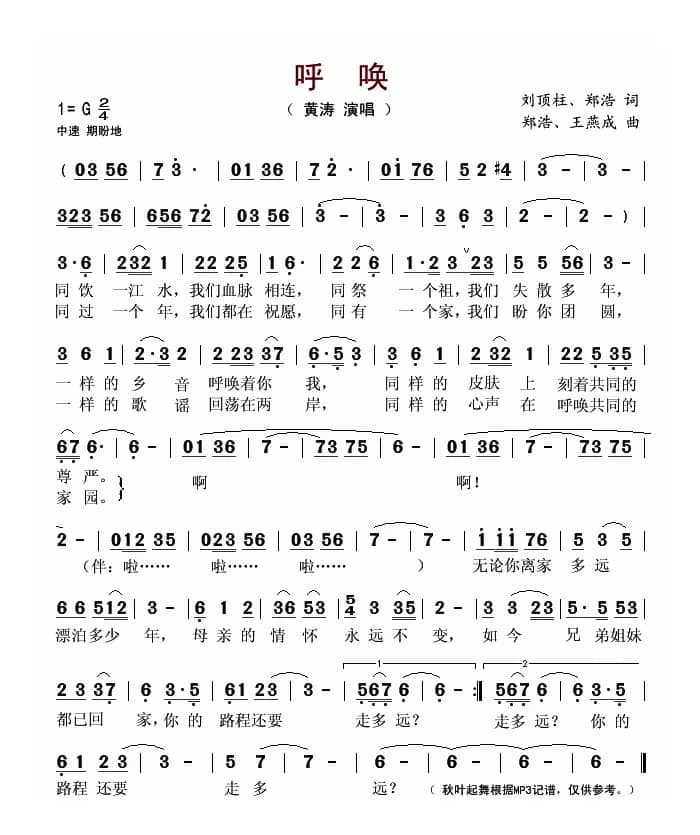 呼 唤
1= G 2/4
（ 黄涛 演唱 ）
刘顶柱、郑浩 词
中速 期盼地
郑浩、王燕成 曲
( 03 56 | 7 3 · | 01 36 | 72 · | 01 76 | 52 #4 | 3 – | 3 – |
323 56 | 656 72 | 03 56 | 3 – | 3 – | 3 6 3 | 2 – | 2 – )
3 · 6 | 232 1 | 22 25 | 1 6 · | 20 35 | 1 · 2 3 23 | 5 5 56 | 3 – |
同饮 一江 水，我们血脉 相连， 同祭 一个祖，我们 失散多 年，
同过 一个 年，我们都在 祝愿， 同有 一个家，我们 盼你团 圆，
3 6 1 | 2 · 3 2 | 2 23 37 | 6 · 5 3 | 3 6 1 | 2 32 1 | 22 5 5 35 |
一样的 乡 音 呼唤着你 我， 同样的 皮肤 上 刻着共同的
一样的 歌 谣 回荡在两 岸， 同样的 心声 在 呼唤共同的
67 6 · | 6 – | 01 36 | 7 – | 73 75 | 6 – | 01 36 | 7 – | 73 75 |
尊 严。 啊 啊！
家 园。
2 – | 012 35 | 023 56 | 03 56 | 7 – | 7 – | 1 11 76 | 5 3 5 |
（伴：啦…… 啦…… 啦…… ） 无论你离家 多 远
6 6 512 | 3 – | 6 1 2 | 36 53 | 5/4 3 35 | 2 – | 3 3 23 | 5 · 5 35 |
漂泊多少 年， 母亲的 情 怀 永远不 变， 如今 兄 弟姐妹
1 2
2 3 37 | 6 3 · 5 | 61 223 | 3 – | 567 6 | 6 – :| 567 6 | 6 3 · 5 |
都已回 家，你的 路程还要 走多 远？ 走多远？ 你的
61 223 | 3 – | 3 – | 5 7 | 6 – | 6 – | 6 – | 6 – ‖
路程 还要 走 多 远？ （ 秋叶起舞根据MP3记谱，仅供参考。）